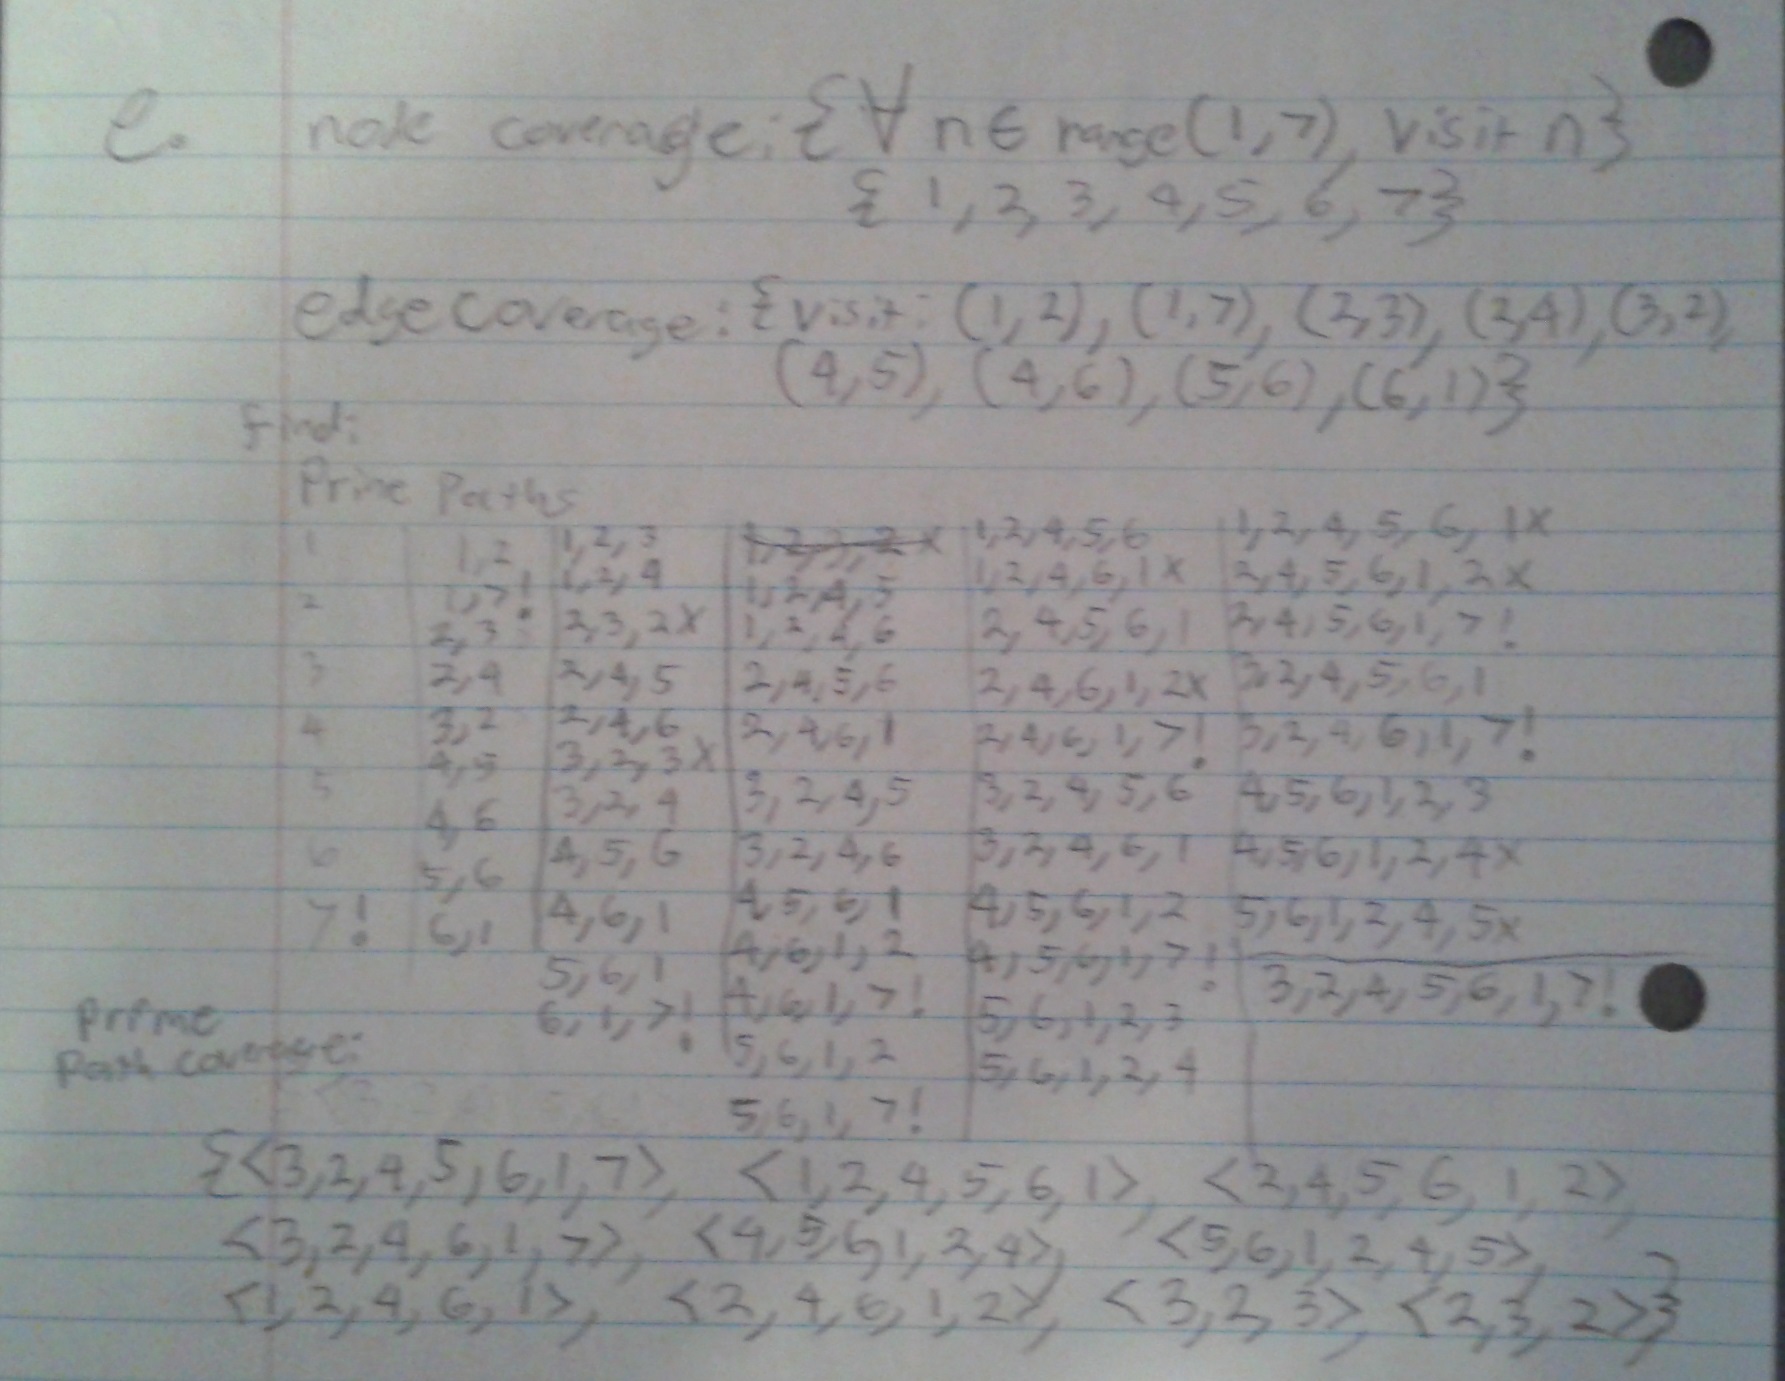 e. node coverage: {∀ n∈ range(1,7), visit n}
{1,2,3,4,5,6,7}
edge coverage: {visit: (1,2), (1,7), (2,3), (2,4), (3,2),
(4,5), (4,6), (5,6), (6,1)}
find:
Prime Paths
1 1,2 1,2,3 1,2,3,2x 1,2,4,5,6 1,2,4,5,6,1x
2 1,7! 1,2,4 1,2,4,5 1,2,4,6,1x 2,4,5,6,1,2x
3 2,3 2,3,2x 1,2,4,6 2,4,5,6,1 2,4,5,6,1,7!
4 2,4 2,4,5 2,4,5,6 2,4,6,1,2x 3,2,4,5,6,1
5 3,2 2,4,6 2,4,6,1 2,4,6,1,7! 3,2,4,6,1,7!
6 4,5 3,2,3x 3,2,4,5 3,2,4,5,6 4,5,6,1,2,3
7! 4,6 3,2,4 3,2,4,6 3,2,4,6,1 4,5,6,1,2,4x
5,6 4,5,6 4,5,6,1 4,5,6,1,2 5,6,1,2,4,5x
6,1 4,6,1 4,6,1,2 4,5,6,1,7!
5,6,1 4,6,1,7! 5,6,1,2,3 3,2,4,5,6,1,7!
6,1,7! 5,6,1,2 5,6,1,2,4
5,6,1,7!
Prime
Path coverage:
{<3,2,4,5,6,1,7>, <1,2,4,5,6,1>, <2,4,5,6,1,2>,
<3,2,4,6,1,7>, <4,5,6,1,2,4>, <5,6,1,2,4,5>,
<1,2,4,6,1>, <2,4,6,1,2>, <3,2,3>, <2,3,2>}